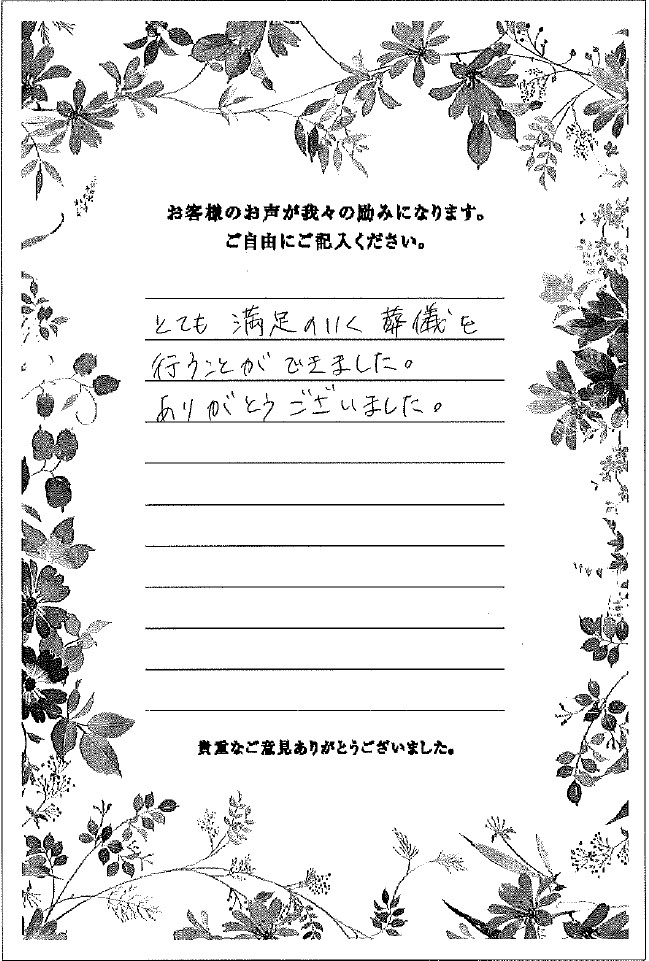 お客様のお声が我々の励みになります。
ご自由にご記入ください。
とても 満足のいく 葬儀を
行うことが できました。
ありがとうございました。
貴重なご意見ありがとうございました。